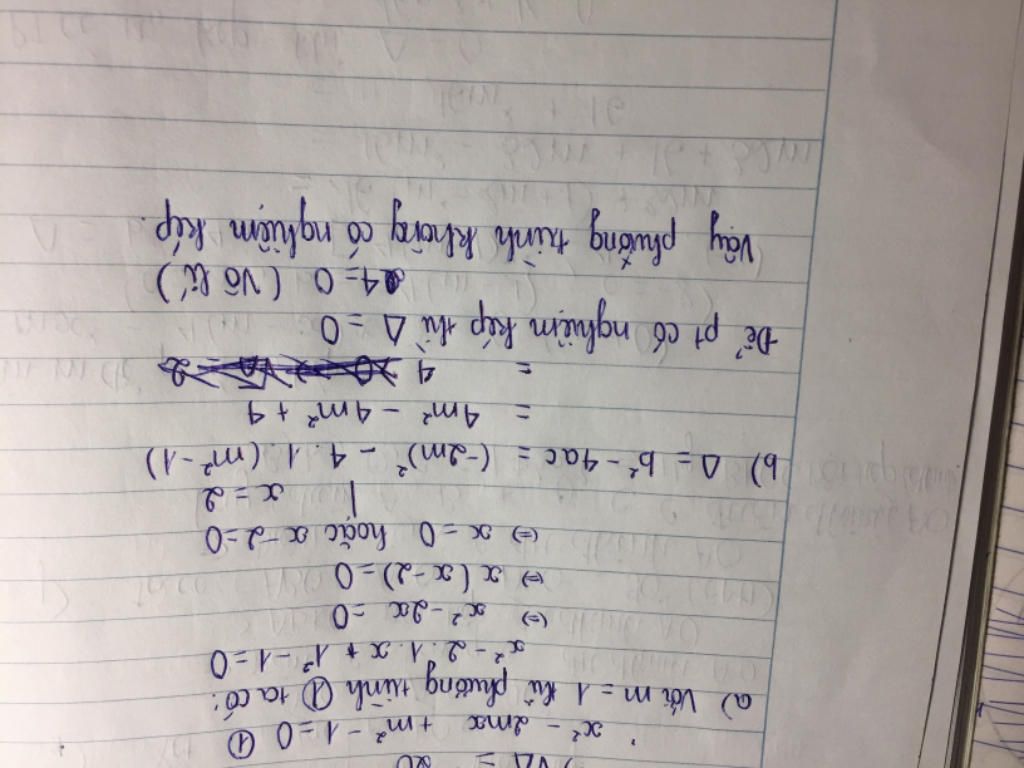 √Δ = 20
x² - 2mx + m² - 1 = 0 ①
a) Với m = 1 thì phương trình ① ta có:
x² - 2.1.x + 1² - 1 = 0
⇔ x² - 2x = 0
⇔ x(x-2) = 0
⇔ x = 0 hoặc x-2=0
| x = 2
b) Δ = b² - 4ac = (-2m)² - 4.1.(m²-1)
= 4m² - 4m² + 4
= 4
Để pt có nghiệm kép thì Δ = 0
4 = 0 (Vô lí)
Vậy phương trình không có nghiệm kép.